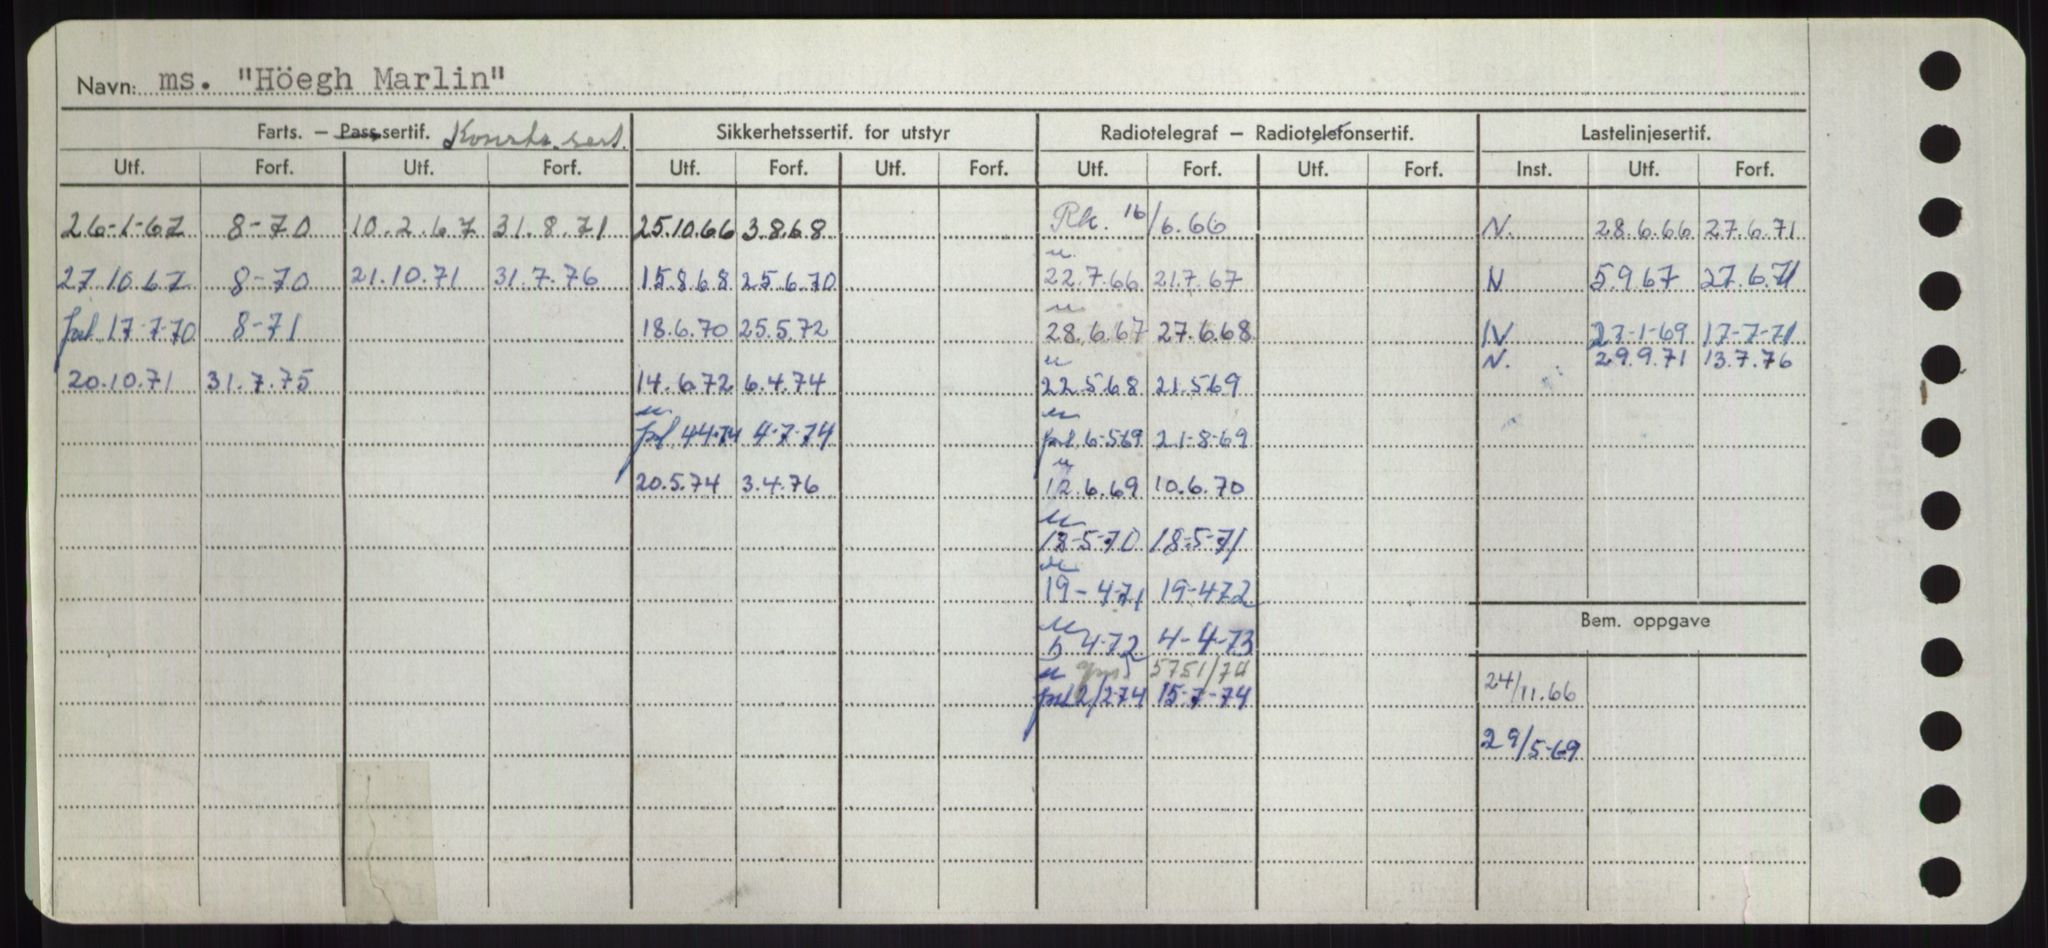 Navn: ms. "Höegh Marlin"
Farts. – Pass sertif. Konstr. sert. Sikkerhetssertif. for utstyr Radiotelegraf – Radiotelefonsertif. Lastelinjesertif.
Utf. Forf. Utf. Forf. Utf. Forf. Utf. Forf. Utf. Forf. Utf. Forf. Inst. Utf. Forf.
26-1-67 8-70 10.2.67 31.8.71 25.10.66 3.8.68 Rk. 16/6.66 N. 28.6.66 27.6.71
27.10.67 8-70 21.10.71 31.7.76 15.8.68 25.6.70 22.7.66 21.7.67 N 5.9.67 27.6.71
forl 17-7-70 8-71 18.6.70 25.5.72 28.6.67 27.6.68 N 17-7-71
N. 29.9.71 13.7.76
20.10.71 31.7.75 14.6.72 6.4.74 22.5.68 21.5.69
forl 4.4.74 4-7-74 forl 6-5-69 21-8-69
20.5.74 3.4.76 12.6.69 10.6.70
18-5-70 18-5-71
19-4-71 19-4-72
Bem. oppgave
5 4-72 4-4-73
5751/74
forl 2/2-74 15-7-74 24/11.66
29/5-69